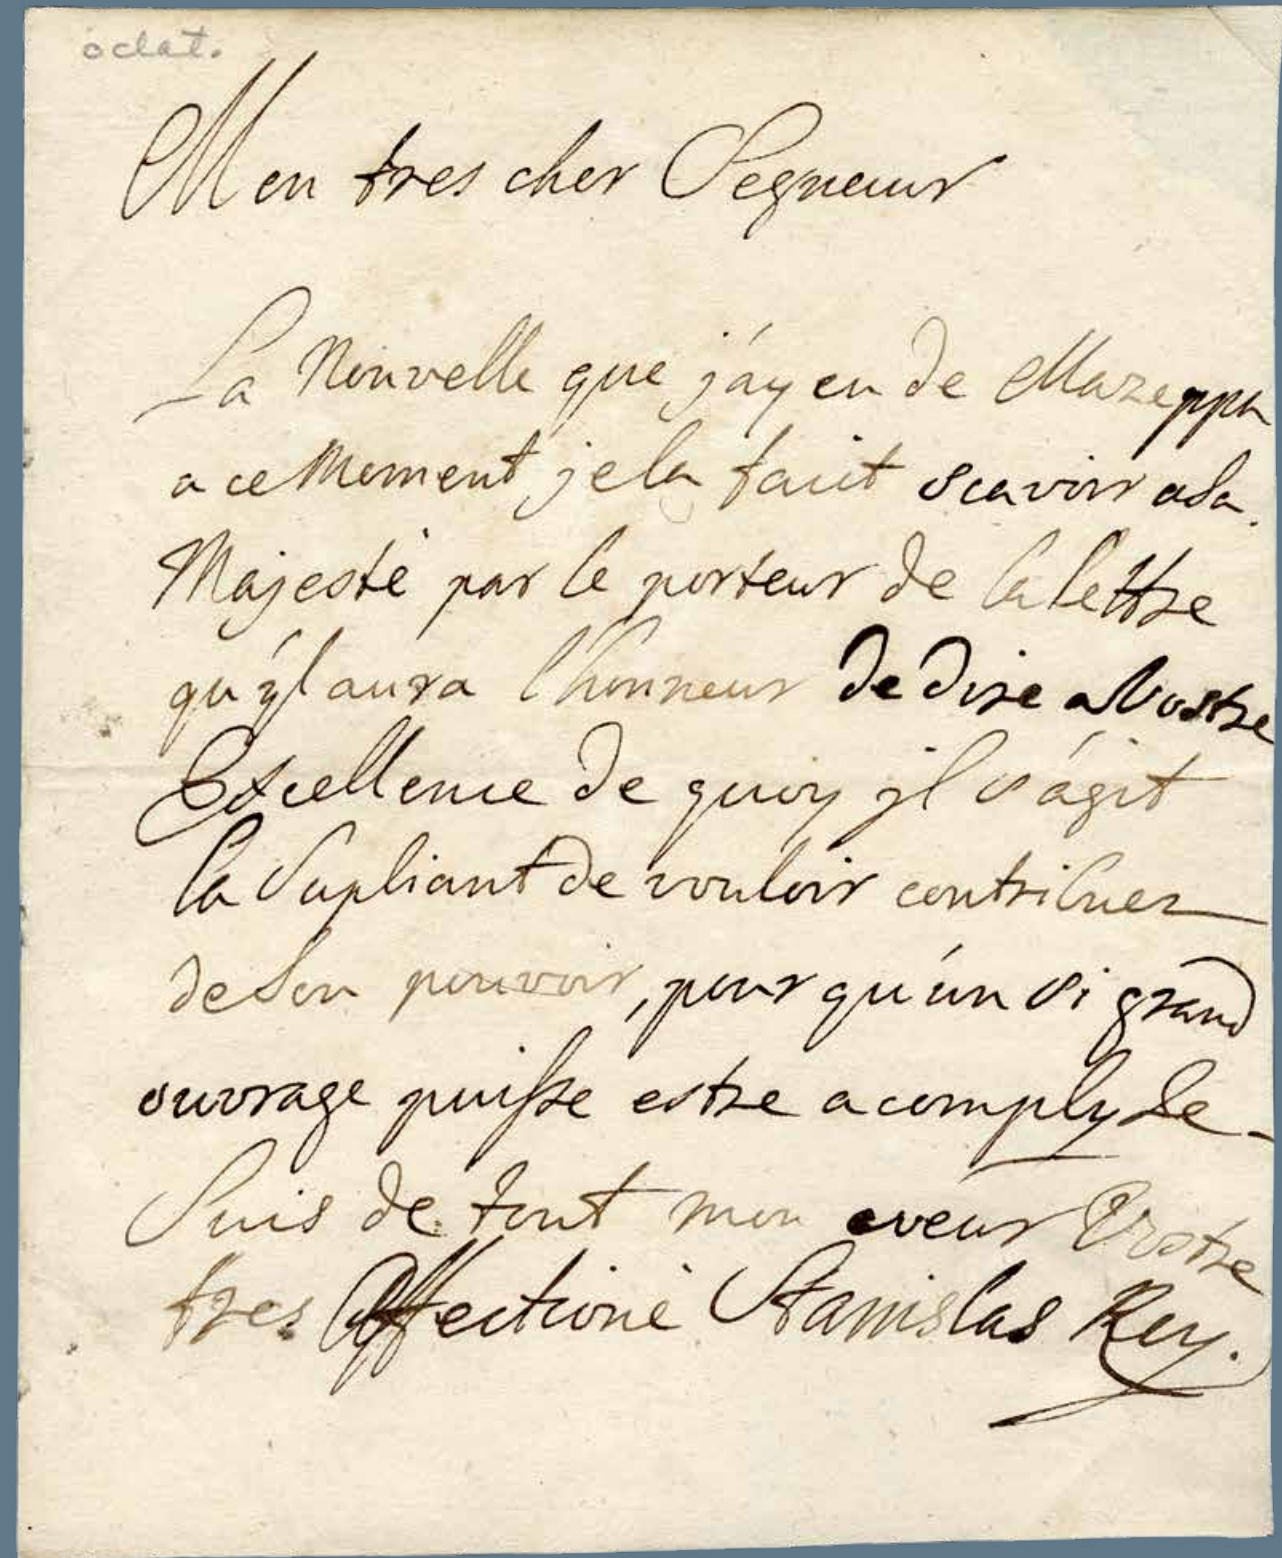 odat.
Mon tres cher Segneur
La Nouvelle que j'ay eu de Mazeppa
a ce Moment je la fait scavoir a Sa
Majesté par le porteur de la lettre
qu'yl aura l'honneur de dire a Vostre
Excellence de quoy jl s'agit
la Supliant de vouloir contribuer
de Son pouvoir, pour qu'un si grand
ouvrage puisse estre acomply Je
Suis de tout mon coeur Vostre
tres Affectioné Stanislas Roy.